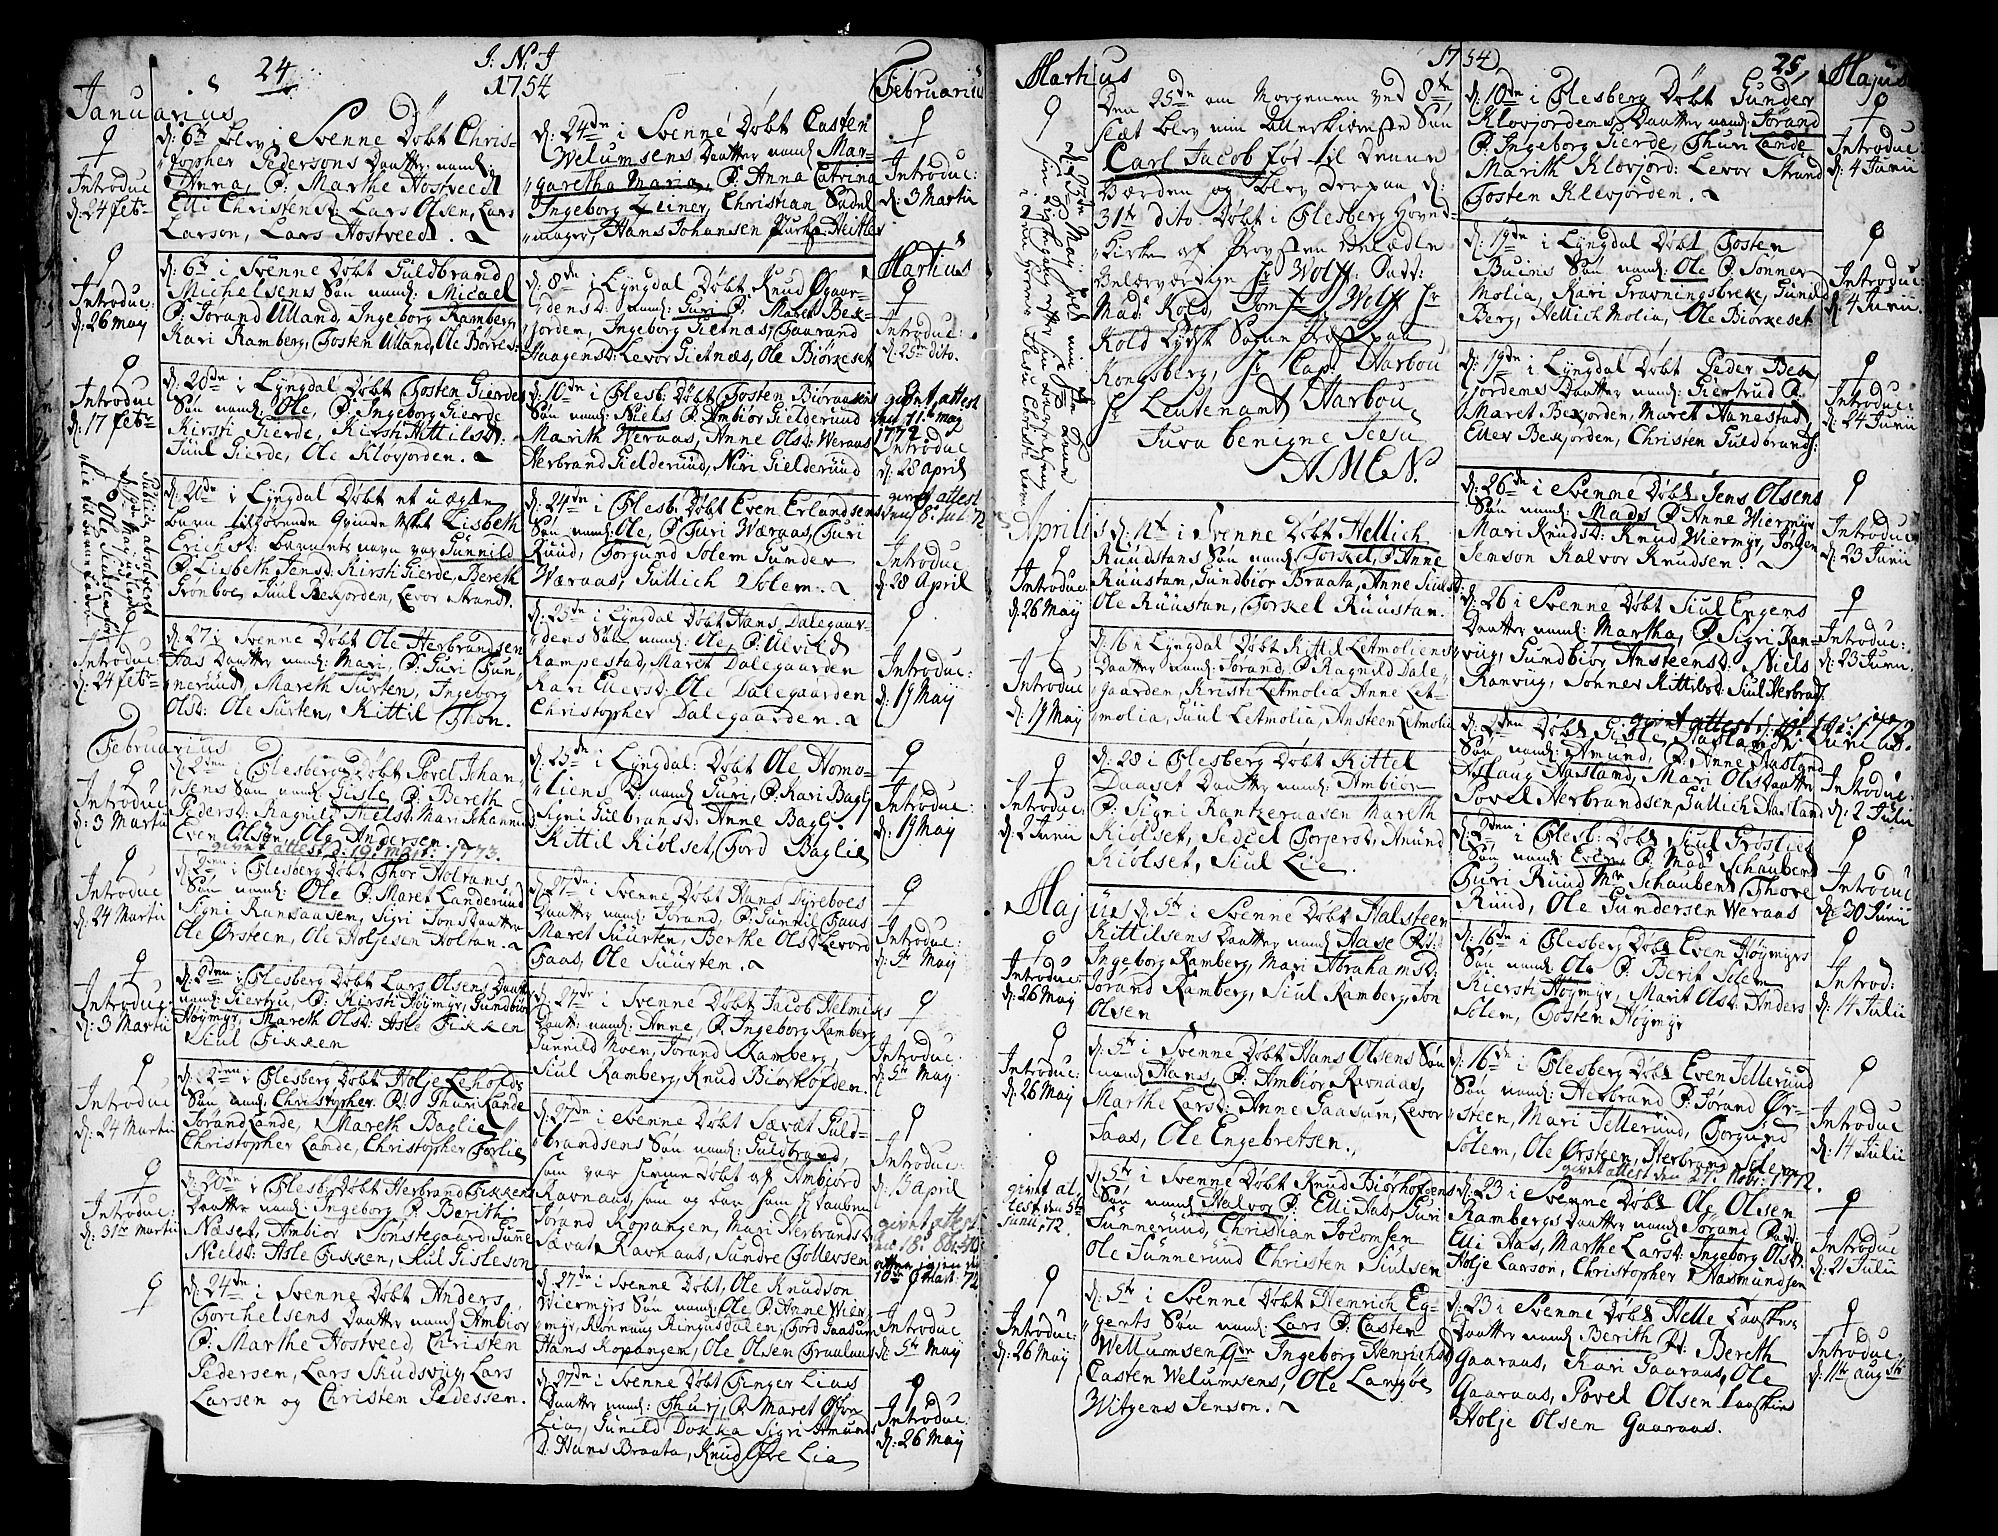 24
J: N: J
1754
Januarius
d: 6te blev i Svenne Døbt Chris-
topher Pedersons Daatter naml:
Anna, P: Marthe Hostveed
Elli Christensd: Lars Olsen, Lars
Larson, Lars Hostveed.
Introduc
d: 24 febr
d: 6te i Svenne Døbt Guldbrand
Michelsens Søn naml: Micael
P: Jorand Ulland, Ingeborg Ramberg,
Kari Ramberg, Tosten Ulland, Ole Børres:
Introduc:
d: 26 may
d: 20de i Lyngdal Døbt Tosten Gierdes
Søn naml: Ole, P: Ingeborg Gierde
Kirsti Gierde, Kirsti Kittilsd:
Juul Gierde, Ole Klovjorden.
Introduc
d: 17 febr
d: 20de i Lyngdal Døbt et uægte
barn tilhørende Qvinde Msk Lisbeth
Erichsd: barnets navn var Gunnild
P: Lisbeth Jensd: Kirsti Gierde, Bereth
Grønboe, Juul Bekjorden, Levor Strand.
d: 27 i Svenne Døbt Ole Herbrandsen
Aas Daatter naml: Mari, P: Guri Thun-
nerüud, Mareth Surten, Ingeborg
Olsd: Ole Surten, Kittil Thon.
Introduc:
d: 24 febr
Februarius
d: 2den i Flesberg Døbt Povel Johan-
sens Søn naml: Gisle, P: Bereth
Pedersd: Ragnild Nielsd: Mari Johannis
Even Olsøn, Ole Andersen.
givet attest d: 19 mart: 1773.
Introduc
d: 3 Martii
d: 2den i Flesberg Døbt Thor Holtans
Søn naml: Ole P: Maret Landerüud
Sigri Ransaasen, Sigri Jons Daatter
Ole Ørsteen, Ole Holjesen Holtan.
Introduc
d: 24 Martii
d: 2den i Flesberg Døbt Lars Olsens Daatt
naml: Giertru P: Kirsti Høymyr, Gundbiør
Høymyr, Mareth Olsd: Asle Fikken
Siul Fikken
Introduc
d: 3 Martii
d: 2den i Flesberg Døbt Holje Lehofds
Søn naml: Christopher P: Thuri Lande
Jørand Lande, Mareth Baglie
Christopher Lande, Christopher Forlie
Introduc
d: 24 Martii
d: 20de i Flesb: Døbt Herbrand Fikkens
Daatter naml: Ingeborg P: Berith
Næset, Ambiør Sønstegaard, Gune
Nielsd: Asle Fikken, Siul Gisleson
Introduc:
d: 31te Martii
d: 24de i Svenne Døbt Anders
Torchelsens Daatter naml: Ambiør
P: Marthe Hostveed, Christen
Pedersen, Lars Skudsvig, Lars
Larsen og Christen Pedessen.
Februarius
d: 24de i Svenne Døbt Casten
Welumsens Daatter naml: Mar-
garetha Maria, P: Anna Catrina
Ingeborg Zeiner, Christian Sadel
mager, Hans Johansen
Introduc:
d: 3 Martii
Martius
d: 8de i Lyngdal Døbt Knud Øgaar-
dens D: naml: Guri P: Maret Bek-
jorden, Ingeborg Gietnæs, Gaarand
Haagensd: Levor Gietnæs, Ole Biørkeset
Introduc:
d: 25de dito.
d: 10de i Flesb: Døbt Tosten Biøraas
Søn naml: Niels P: Ambiør Gielderüud
Marith Weraas, Anne Olsd: Weraas
Herbrand Gielderüud, Niri Gielderüud
givet attest
den 11te may
1772
Introduc
d: 28 April
d: 24de i Flesb: Døbt Even Erlandsens
Søn naml: Ole, P: Guri Wæraas, Guri
Ruud, Torgund Solem Gunder
Wæraas, Gullich Solem.
givet attest
den 6 Jul: 72
Introduc
d: 28 April
d: 25de i Lyngdal Døbt Hans Dalegaar-
dens Søn naml: Ole, P: Ulvild
Rampestad, Maret Dalegaarden
Kari Elevsd: Ole Dalegaarden
Christopher Dalegaarden.
Introduc:
d: 19 May
d: 25de i Lyngdal: Døbt Ole Homo-
liens D: naml: Guri, P: Kari Bagli
Signi Gulbransd: Anne Bagli:
Kittil Kiølset, Tord Baglie
Introduc:
d: 19 May
d: 27de i Svenne Døbt Hans Dyreboes
Daatter naml: Jorand, P: Gunnil Faas
Maret Suurten, Berthe Olsd: Levord
Faas, Ole Suurten.
Introduc:
d: 5te May
d: 27de i Svenne Døbt Jacob Helmiks
Daatt: naml: Anne, P: Ingeborg Ramberg
Gunnild Moen, Jorand Ramberg,
Siul Ramberg, Knud Biørkhofden.
Introduc:
d: 5te May
d: 27de i Svenne Døbt Sævat Guld-
brandsens Søn naml: Guldbrand,
som var hiemmedøbt af Ambiørd
Ravnaas, som og bar ham t: Daaben
Jørand Kopangen, Mari Herbrandsd:
Savat Ravnaas, Gundre Tollevsen
Introduc:
d: 13 april
givet attest
den 18 8br: 70
atter igien d:
10de Mart: 72
d: 27de i Svenne Døbt Ole Knudson
Wiermyrs Søn naml: Ole P: Anne Wier-
myr, Rønnaug Ringusdalen, Tord Gaasum
Hans Kopangen, Ole Olsen Traalaas
Introduc
d: 5te May
d: 27de i Svenne Døbt Finger Lias
Daatter naml: Thurj, P: Maret Øfre
Lia, Gunild Dokka Sigri Amunds
D: Hans Braata, Knud Øfre Lia
Introduc:
d: 26 May
1754
25,
Martius
Den 25de om Morgenen ved 8te
slæt blev min Allerkiæreste Søn
Carl Jacob fød til denne
Værden og blev derpaa d:
31te dito Døbt i Flesberg Hoved-
Kirke af Provsten Velædle
Velærværdige Hr Wolff:
Madme Kold, Jomfr Wolff Hr
Kold Lydsk Sogne Præst paa
Kongsberg, Hr Cap: Harbou
Hr Leutenant Harbou
Jura benigne Jesu
AMEN.
Aprilis
d: 4te i Svenne Døbt Hellich
Ruudstans Søn naml: Torkel, P: Anne
Ruustan, Gundbiør Braata, Anne Siulsd:
Ole Ruustan, Torkel Ruustan.
Introduc:
d: 26 May
d: 16 i Lyngdal Døbt Kittil Letmoliens
Daatter naml: Jorand, P: Ragnild Dale-
gaarden, Kristi Letmolia Anne Let-
molia, Juul Letmolia, Ansteen Letmolia
Introduc
d: 19 May
d: 28 i Flesberg Døbt Kittel
Daaset Daatter naml: Ambiør
P: Signi Rantzeraasen Mareth
Kiolset, Sedsel Torjersd: Amünd
Kiolset, Siul Lie.
Introduc:
d: 2 Junii
Majus
d: 5te i Svenne Døbt Halsteen
Kittilsens Daatter naml: Aase P:
Ingeborg Ramberg, Mari Abrahamsd:
Jørand Ramberg, Siul Ramberg Jon
Olsen
Introduc:
d: 26 May
d: 5te i Svenne Døbt Hans Olsens Søn
naml: Hans, P: Ambiør Ravnaas,
Marthe Larsd: Anne Gaasum, Levor
Faas, Ole Engebretsen.
Introduc:
d: 26 May
d: 5te i Svenne Døbt Knud Biørhofdens
Søn naml: Halvor P: Elli Aas, Guri
Sunnerund, Christian Jocomsen
Ole Sunnerund Christen Siulsen
givet at-
test den 5te
Junii, 72.
d: 5te i Svenne Døbt Hemrich Eg-
gerts Søn naml: Lars P: Casten
Wellumsens Qde Ingeborg Henrichsd:
Casten Welumsens, Ole Langbe
Witgens Jenson.
Introduc:
d: 26 May
Majus
d: 10de i Flesberg Døbt Gunder
Klovjordens Daatter naml: Jorand
P: Ingeborg Gierde, Thuri Lande
Marith Klovjord: Levor Strand
Tosten Klevjorden.
Introduc
d: 4 Junii
d: 19de i Lyngdal Døbt Tosten
Buins Søn naml: Ole P: Sønner
Molia, Kari Gravningsbreke, Gunild
Berg, Hellich Molia, Ole Biørkeset
Introduc:
d: 4 Junii.
d: 19de i Lyngdal Døbt Peder Bek-
jordens Daatter naml: Giertrud P:
Maret Bekjorden, Maret Hanestad,
Eller Bekjorden, Christen Guldbrands:
Introduc:
d: 24 Junii
d: 26de i Svenne Døbt Jens Olsens
Søn naml: Mads P: Anne Wiermyr
Mari Knudsd: Knud Wiermyr, Jørgen
Jenson Halvor Knudsen.
Introduc:
d: 23 Junii
d: 26 i Svenne Døbt Siul Engens
Daatter naml: Martha, P: Sigri Ran-
vig, Gundbiør Ansteensd: Niels
Ranvug, Sønnev Kittilsd: Siul Herbrands:
Introduc:
d: 23 Junii.
Junius.
d: 2den Døbt Gisle Haslands
Søn naml: Amund, P: Anne Hasland
Aslaug Hasland, Mari Olsdaatter
Povel Herbrandsen, Gullich Hasland
Introduc:
d: 2 Julii
d: 2den i Flesb: Døbt Juul Grøslies
Søn naml: Even, P: Made Schaubert
Turi Ruud Mr Schaubert Thore
Ruud, Ole Gundersen Weraas
Introduc
d: 30 Junii
d: 16de i Flesberg Døbt Even Høymyrs
Søn naml: Ole P: Berit Solem
Kiersti Høymyr, Marit Olsd: Anders
Solem, Tosten Høymyr
Introd:
d: 14 Julii
d: 16de i Flesberg Døbt Even Jellerüud
Søn naml: Herbrand P: Jorand Ør-
steen, Mari Jellerund, Torgund
Solem, Ole Ørsteen, Herbrand Solem
givet attest den 27. Nobr: 1772.
Introduc
d: 14 Julii
d: 23 i Svenne Døbt Ole Olsen
Rambergs Daatter naml: Jorand Padd:
Elli Aas, Marthe Larsd: Ingeborg Olsd:
Holje Larson, Christopher Aasmundsen
Introduc
d: 21 Julii
d: 23 i Svenne Døbt Helle Laaskes
Daatter naml: Berith P: Bereth
Gaaraas, Kari Gaaraas, Ole
Gaaraas, Povel Olsen Laaskes
Holje Olsen Gaaraas.
Introduc
d: 11te augsti